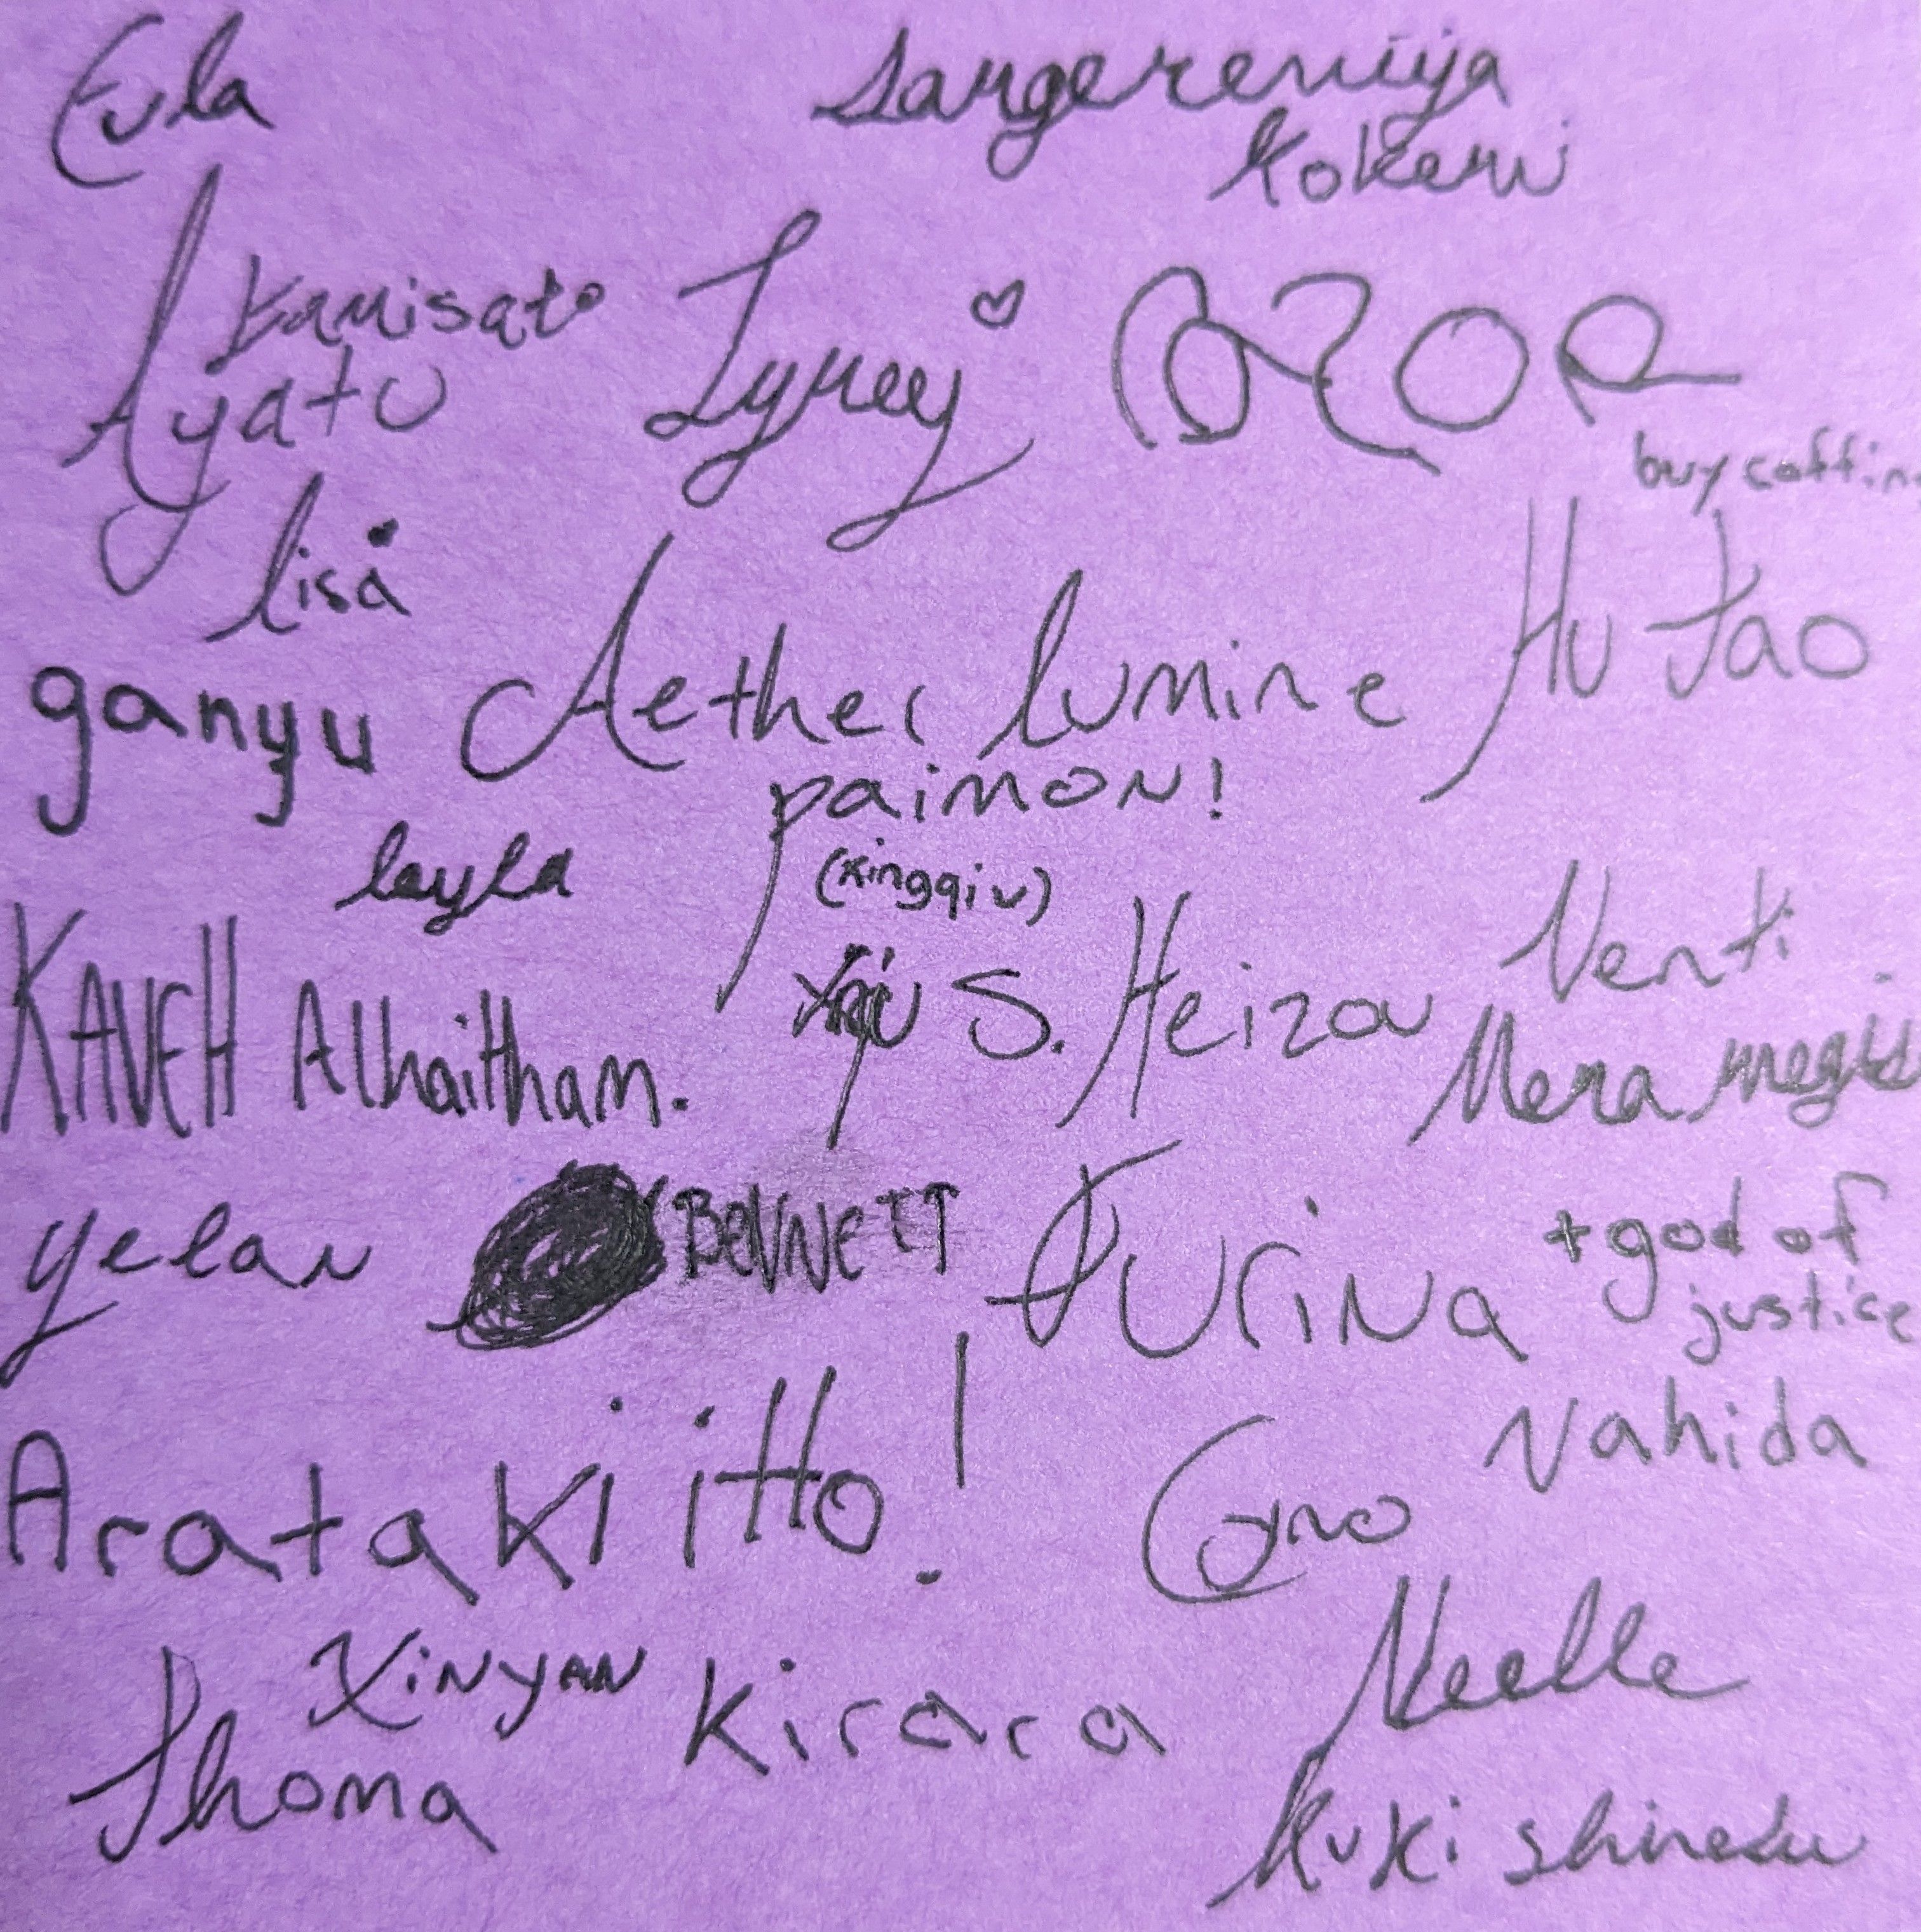 Eula
Sangereniiya
Kokemi
Kamisato
Ayato
Lyney
RAZOR
buy coffins
lisa
Hu Tao
ganyu
Aether lumine
paimon!
layla
(xingqiu)
KAVEH Alhaitham.
S. Heizou
Venti
Mona megis
yelan
BENNETT
Furina
+ god of
justice
Nahida
Arataki itto!
Cyno
Noelle
XiNYAN
Thoma
Kirara
Kuki shinobu